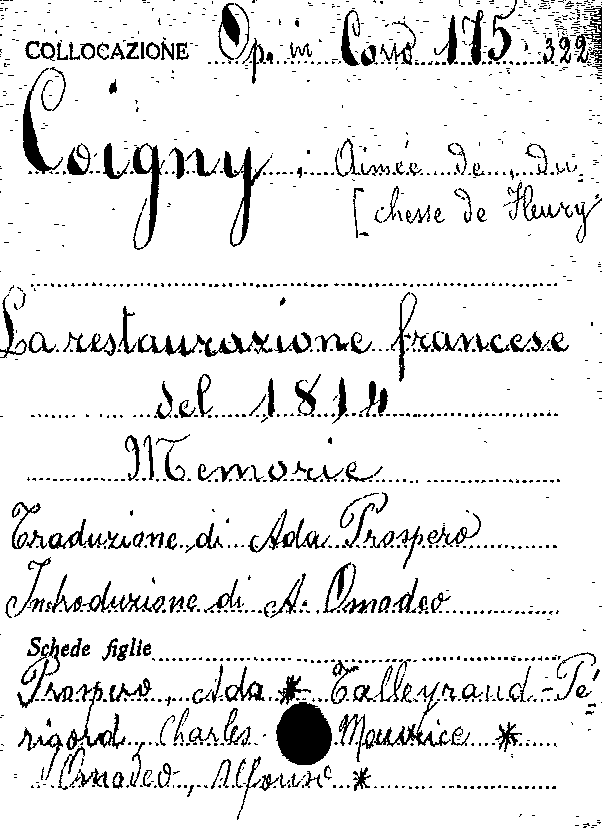 COLLOCAZIONE Op. in Cons 175 322
Coigny, Aimée de, du-
[chesse de Fleury
La restaurazione francese
del 1814
Memorie
Traduzione di Ada Prospero
Introduzione di A. Omodeo
Schede figlie
Prospero, Ada * Talleyrand-Pé-
rigord, Charles Maurice *
Omodeo, Alfonso *